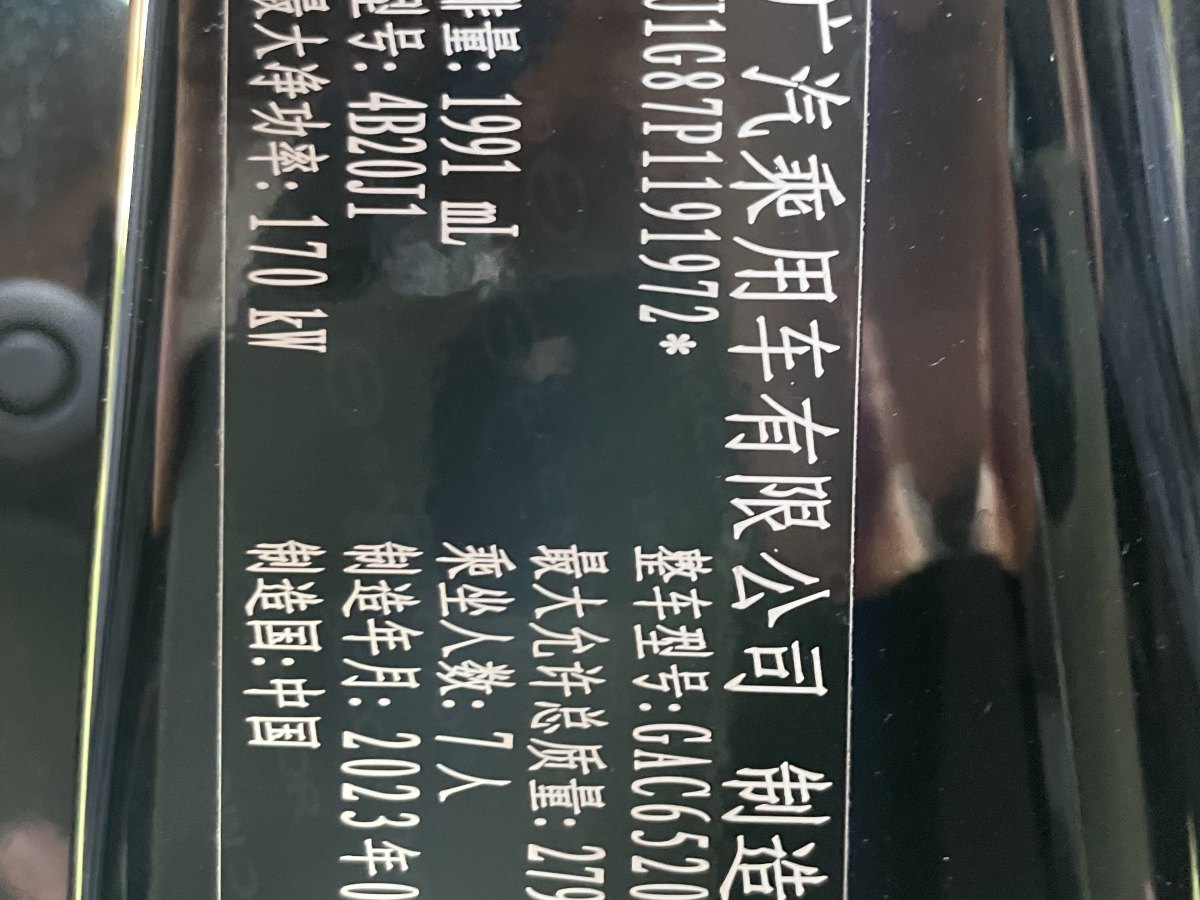 广汽乘用车有限公司 制造
J1G87P1191972*
整车型号:GAC6520
最大允许总质量:279
排量: 1991 mL
乘坐人数: 7人
型号: 4B20J1
制造年月: 2023年0
最大净功率: 170 kW
制造国:中国